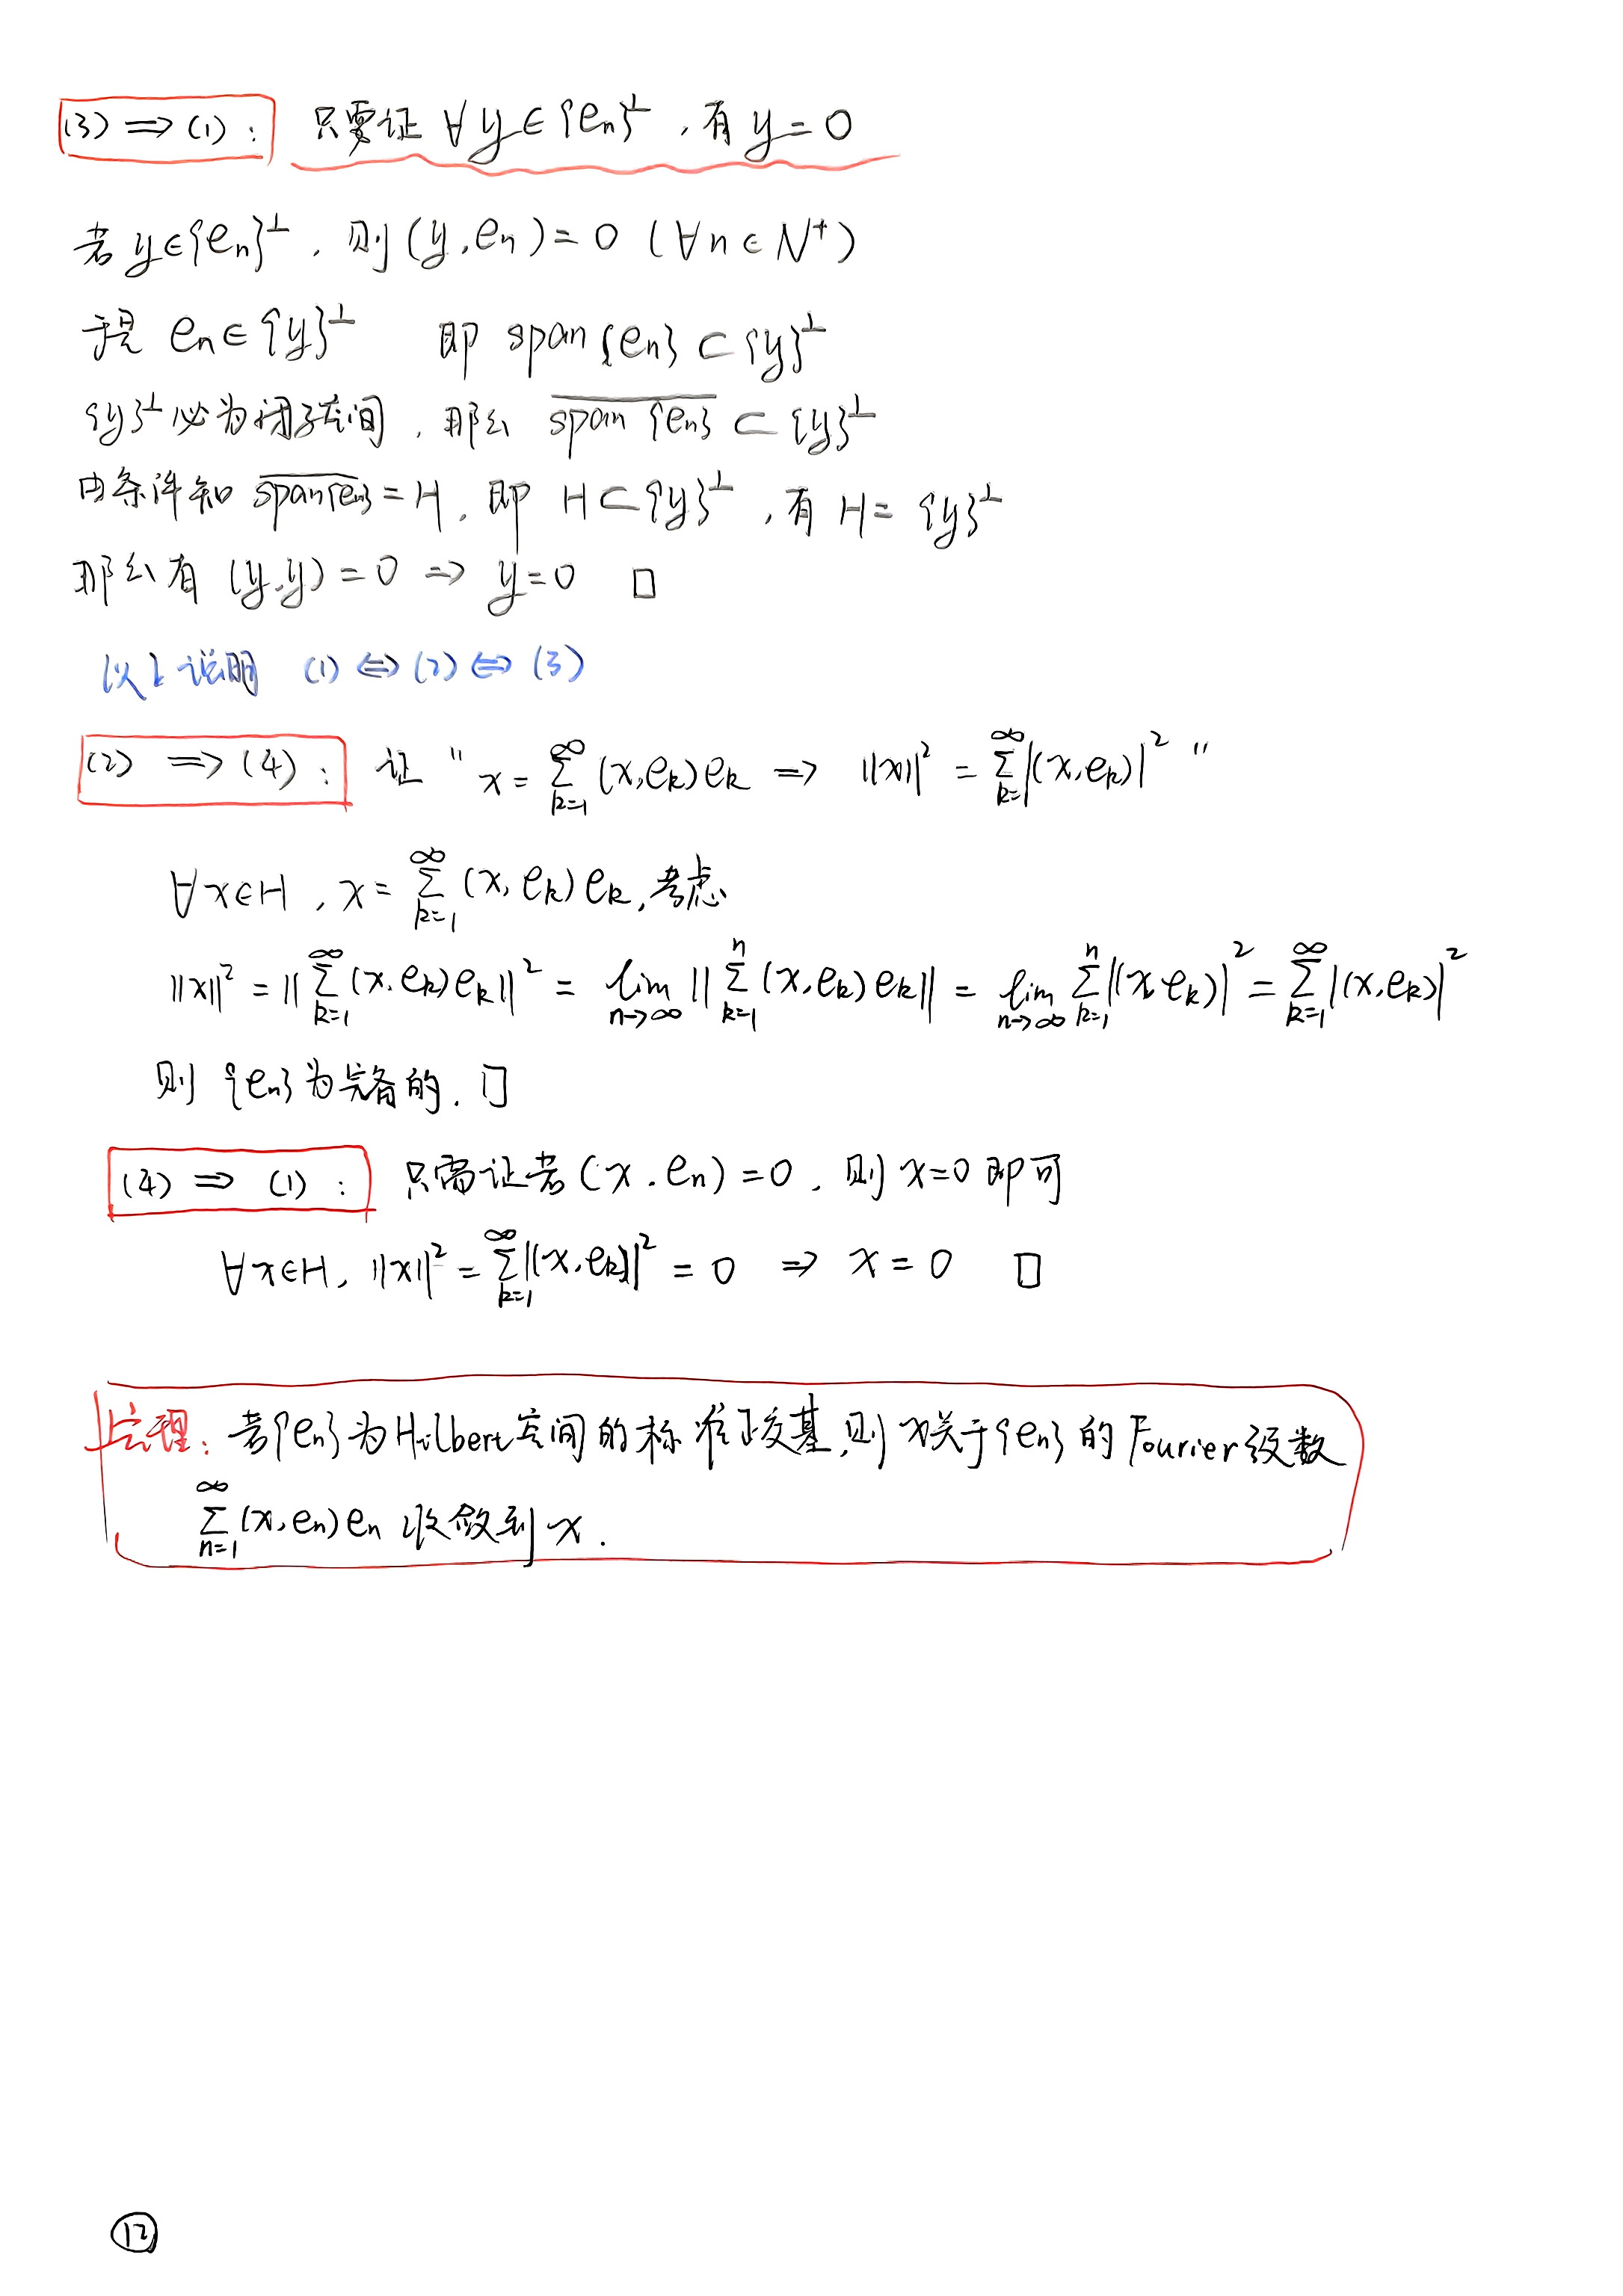 (3) ⟹ (1) : 只要证 ∀ y ∈ {eₙ}^⊥ , 有 y = 0
若 y∈{eₙ}^⊥ , 则 (y, eₙ) = 0 (∀n ∈ N⁺)
于是 eₙ ∈ {y}^⊥ 即 span{eₙ} ⊂ {y}^⊥
{y}^⊥ 必为闭子空间 , 那么 \overline{span {eₙ}} ⊂ {y}^⊥
由条件知 \overline{span{eₙ}} = H , 即 H ⊂ {y}^⊥ , 有 H = {y}^⊥
那么有 (y,y) = 0 ⇒ y = 0 □
以上说明 (1) ⇔ (2) ⇔ (3)
(2) ⟹ (4) : 证 " x = \sum_{k=1}^{∞} (x,e_k)e_k ⇒ ||x||² = \sum_{k=1}^{∞} |(x,e_k)|² "
∀x∈H , x = \sum_{k=1}^{∞} (x, e_k) e_k , 考虑
||x||² = ||\sum_{k=1}^{∞} (x,e_k)e_k||² = \lim_{n→∞} ||\sum_{k=1}^{n} (x,e_k)e_k|| = \lim_{n→∞} \sum_{k=1}^{n} |(x,e_k)|² = \sum_{k=1}^{∞} |(x,e_k)|²
则 {eₙ} 为完备的 . □
(4) ⇒ (1) : 只需证若 (x . eₙ) = 0 , 则 x=0 即可
∀x∈H, ||x||² = \sum_{k=1}^{∞} |(x,e_k)|² = 0 ⇒ x = 0 □
定理: 若{eₙ}为Hilbert空间的标准正交基,则 x关于{eₙ}的Fourier级数
\sum_{n=1}^{∞} (x,eₙ)eₙ 收敛到 x .
⑫